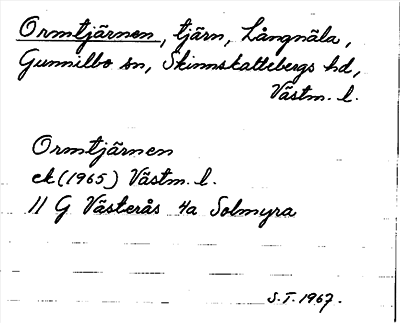 Ormtjärnen, tjärn, Långnäla,
Gunnilbo sn, Skinnskattebergs hd,
Västm. l.
Ormtjärnen
ek (1965) Västm. l.
11 G Västerås 4a Solmyra
S.T. 1967.